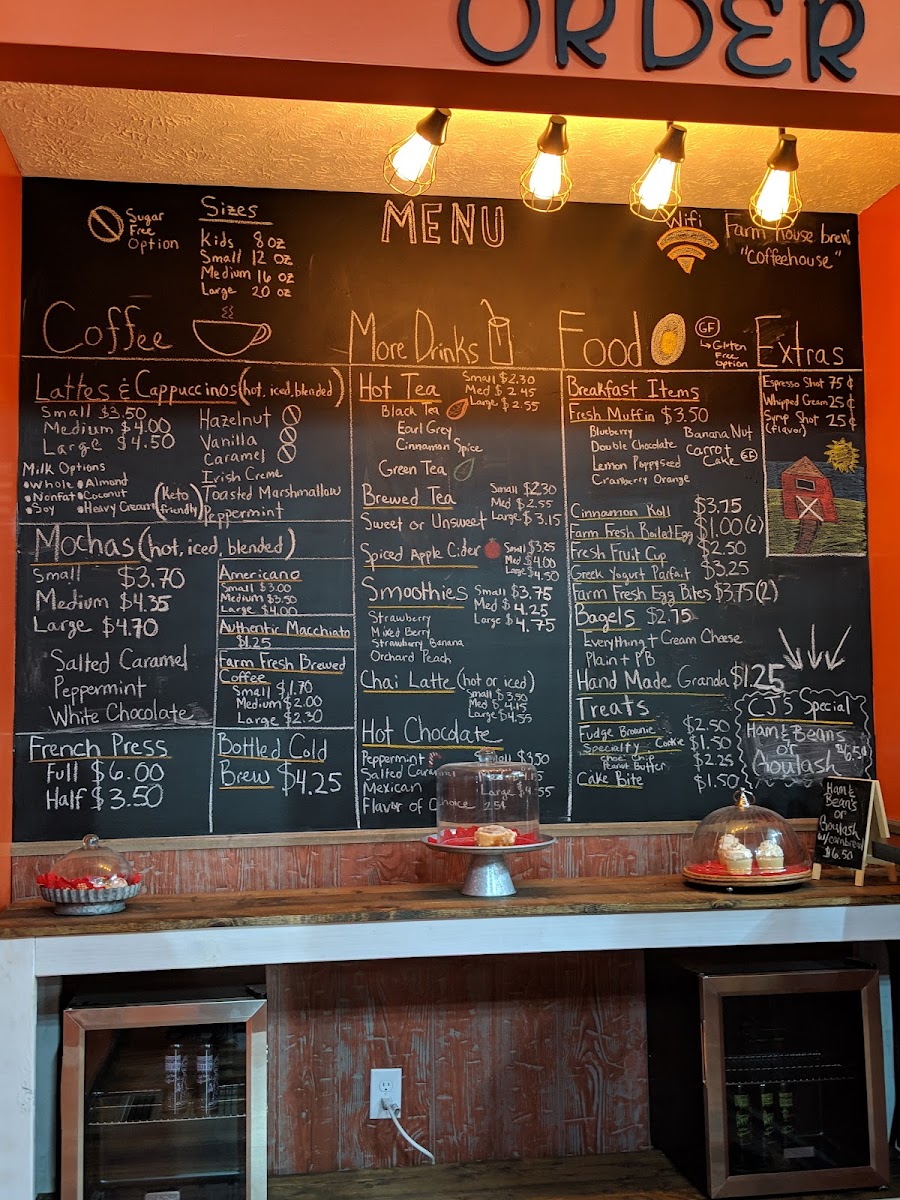 ORDER
Sugar
Free
Option
Sizes
Kids 8 oz
Small 12 oz
Medium 16 oz
Large 20 oz
MENU
Wifi
Farm house brew
"Coffeehouse"
Coffee
Lattes & Cappuccinos (hot, iced, blended)
Small $3.50
Medium $4.00
Large $4.50
Hazelnut
Vanilla
Caramel
Irish Creme
Toasted Marshmallow
Peppermint
Milk Options
•Whole •Almond
•Nonfat •Coconut
•Soy •Heavy Cream (Keto friendly)
Mochas (hot, iced, blended)
Small $3.70
Medium $4.35
Large $4.70
Salted Caramel
Peppermint
White Chocolate
Americano
Small $3.00
Medium $3.50
Large $4.00
Authentic Macchiato
Farm Fresh Brewed
Coffee
Small $1.70
Medium $2.00
Large $2.30
French Press
Full $6.00
Half $3.50
Bottled Cold
Brew $4.25
More Drinks
Hot Tea
Small $2.30
Med $2.45
Large $2.55
Black Tea
Earl Grey
Cinnamon Spice
Green Tea
Brewed Tea
Sweet or Unsweet
Small $2.30
Med $2.55
Large $3.15
Spiced Apple Cider
Small $3.25
Med $4.00
Large $4.50
Smoothies
Small $3.75
Med $4.25
Large $4.75
Strawberry
Mixed Berry
Strawberry Banana
Orchard Peach
Chai Latte (hot or iced)
Small $3.50
Med $4.15
Large $4.55
Hot Chocolate
Peppermint
Salted
Mexican
Flavor of
Large $4.55
Food
GF
Gluten
Free
Option
Breakfast Items
Fresh Muffin $3.50
Blueberry
Double Chocolate
Lemon Poppyseed
Cranberry Orange
Banana Nut
Carrot
Cake GF
Cinnamon Roll $3.75
Farm Fresh Boiled Egg $1.00 (2)
Fresh Fruit Cup $2.50
Greek Yogurt Parfait $3.25
Farm Fresh Egg Bites $3.75 (2)
Bagels $2.75
Everything + Cream Cheese
Plain + PB
Hand Made Granola $1.25
Treats
Fudge Brownie $2.50
Specialty Cookie $1.50
Choc Chip $2.25
Peanut Butter
Cake Bite $1.50
Extras
Espresso Shot 75¢
Whipped Cream 25¢
Syrup Shot 25¢
(flavor)
CJ'S Special
Ham & Beans
or
Goulash $6.50
Ham &
Bean's
or
Goulash
w/cornbread
$6.50